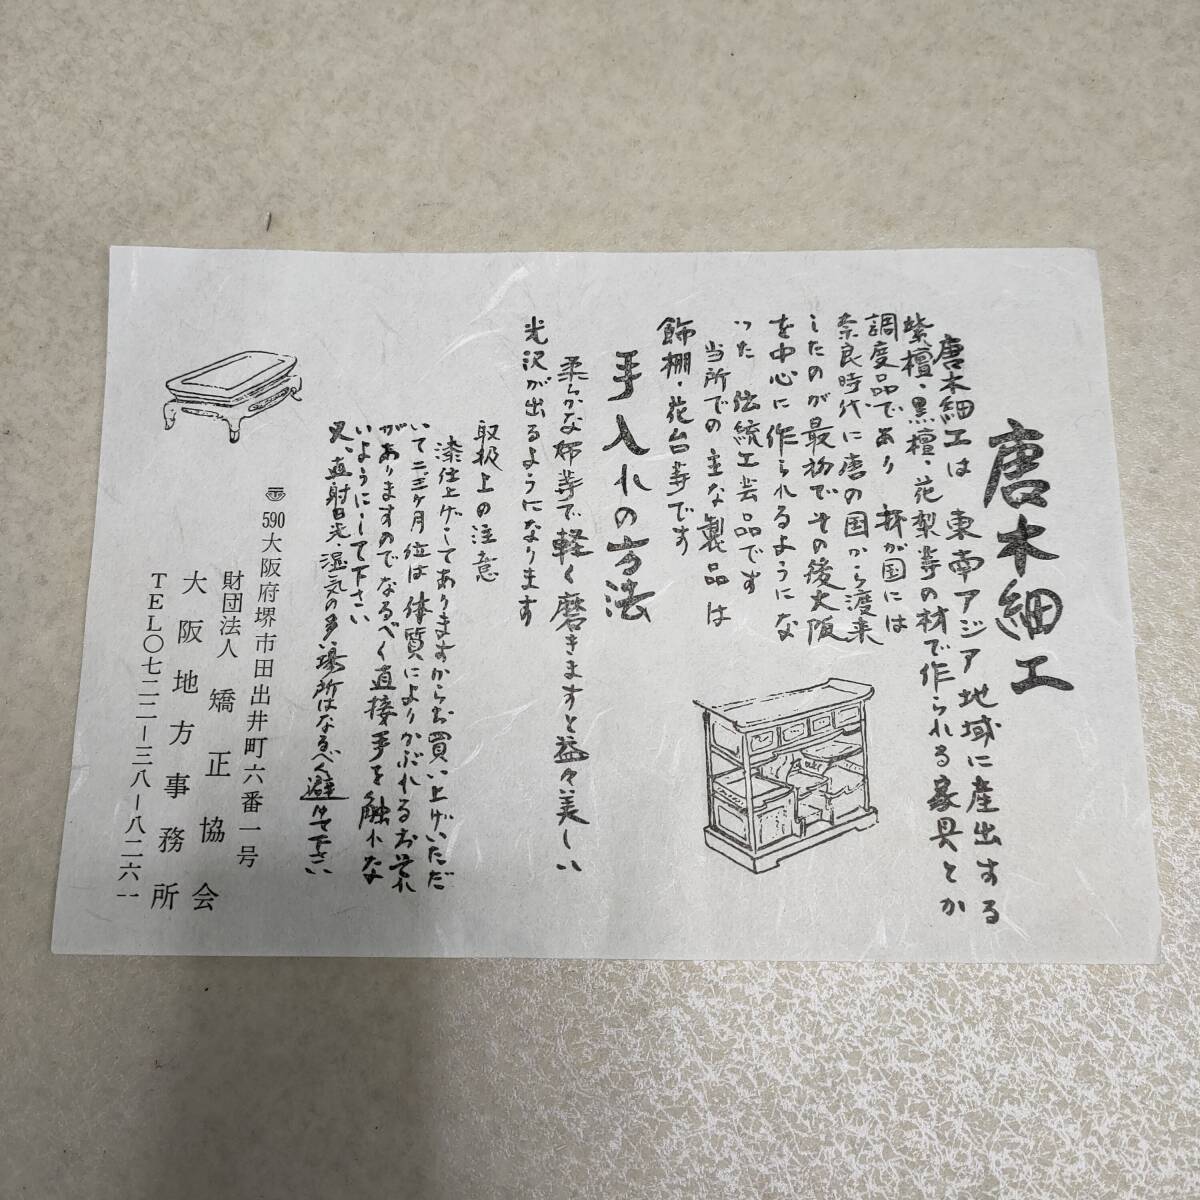 唐木細工
唐木細工は 東南アジア地域に産出する
紫檀・黒檀・花梨等の材で作られる家具とか
調度品であり 我が国には
奈良時代に唐の国から渡来
したのが最初でその後大阪
を中心に作られるようにな
った 伝統工芸品です
当所での主な製品は
飾棚・花台等です
手入れの方法
柔らかな布等で軽く磨きますと益々美しい
光沢が出るようになります
取扱上の注意
漆仕上げしてありますからお買い上げいただ
いて二、三ヶ月位は体質によりかぶれるおそれ
がありますのでなるべく直接手を触れな
いようにして下さい
又、直射日光・湿気の多い場所はなるべく避けて下さい
〠590大阪府堺市田出井町六番一号
財団法人 矯正協会
大阪地方事務所
TEL〇七二二―三八―八二六一